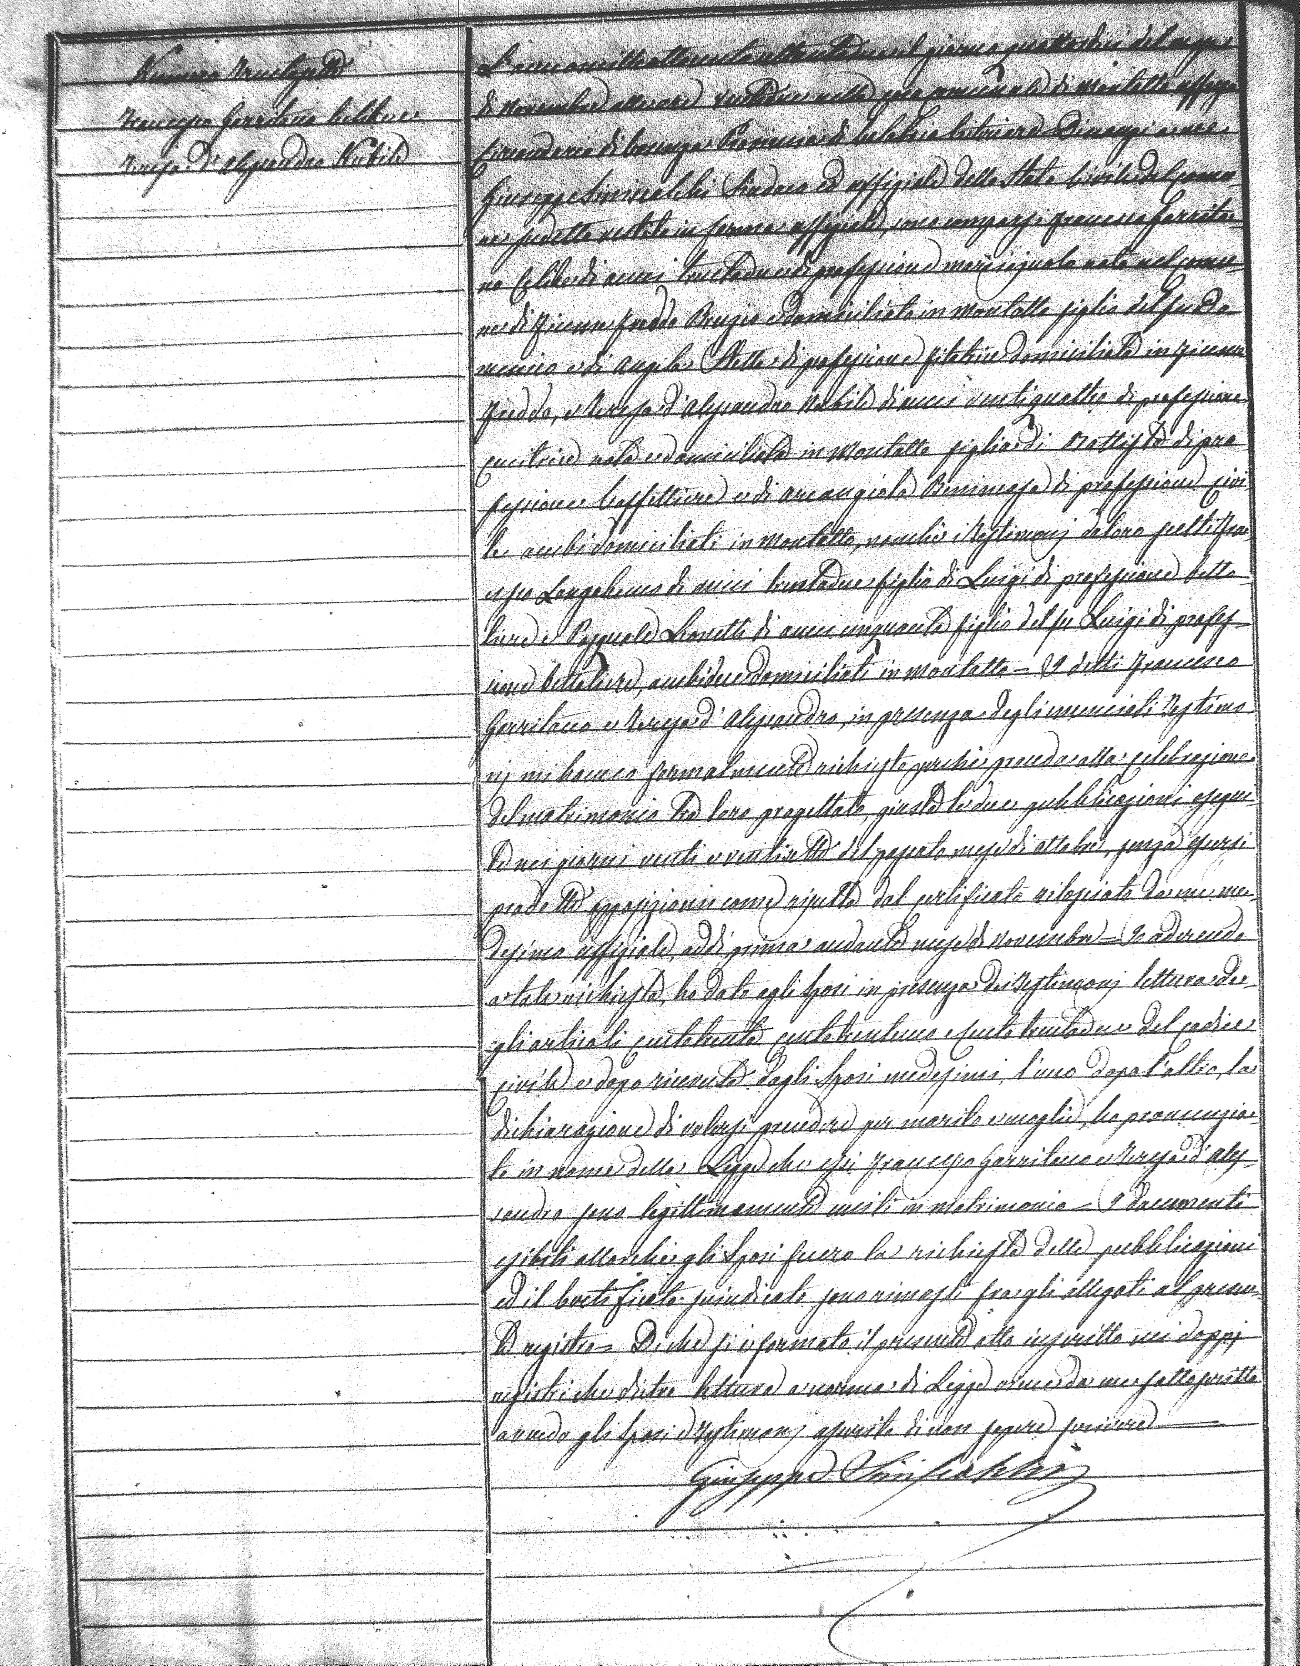 Numero Trentasette
Francesco Garritano Celibe e
Teresa D'Alessandro Nubile
L'anno milleottocento il giorno quattordici del mese
di Novembre alle ore nella casa comunale di Montalto Uffugo
Circondario di Cosenza Provincia di Calabria Citeriore Dinanzi a me
Giuseppe Sindaco ed uffiziale dello Stato Civile del Comu-
ne sudetto vestito in forma uffiziale, sono comparsi Francesco Garrita-
no Celibe di anni trentadue di professione nato nel comu-
ne di Fiumefreddo Bruzio e domiciliato in Montalto figlio del fu Do-
menico e di Angela di professione filatrice domiciliata in Fiume
Freddo, e Teresa d'Alessandro Nubile di anni ventiquattro di professione
cucitrice nata e domiciliata in Montalto figlia di Battista di pro-
fessione Caffettiere e di Arcangiola di professione civi
le ambi domiciliati in Montalto, nonchè i Testimonj da loro scelti Fran
cesco di anni trentadue figlio di Luigi di professione betto-
liere e Pasquale di anni cinquanta figlio del fu Luigi di profes-
sione bettoliere, ambidue domiciliati in Montalto — I detti Francesco
Garritano e Teresa d'Alessandro, in presenza degli enunciati Testimo-
nj mi hanno formalmente richiesto perchè proceda alla celebrazione
del matrimonio tra loro progettato, giusta le due pubblicazioni esegui-
te nei giorni venti e ventisette del passato mese di ottobre, senza essersi
prodotte opposizioni come risulta dal certificato rilasciato da me me-
desimo uffiziale, addì primo andante mese di Novembre — Io aderendo
a tale richiesta, ho dato agli Sposi in presenza dei Testimonj lettura de-
gli articoli centotrenta centotrentuno e centotrentadue del codice
civile e dopo ricevuta dagli Sposi medesimi, l'uno dopo l'altro, la
dichiarazione di volersi prendere per marito e moglie, ho pronunzia-
to in nome della Legge che essi Francesco Garritano e Teresa d'Ales-
sandro sono legittimamente uniti in matrimonio — I documenti
esibiti allorchè gli Sposi fecero la richiesta delle pubblicazioni
ed il Certificato suindicato sono rimasti fra gli allegati al presen-
te registro — Di che si è formato il presente atto inscritto nei doppj
registri che dietro lettura a norma di Legge da me sottoscritto
avendo gli Sposi e Testimonj asserito di non sapere scrivere —
Giuseppe